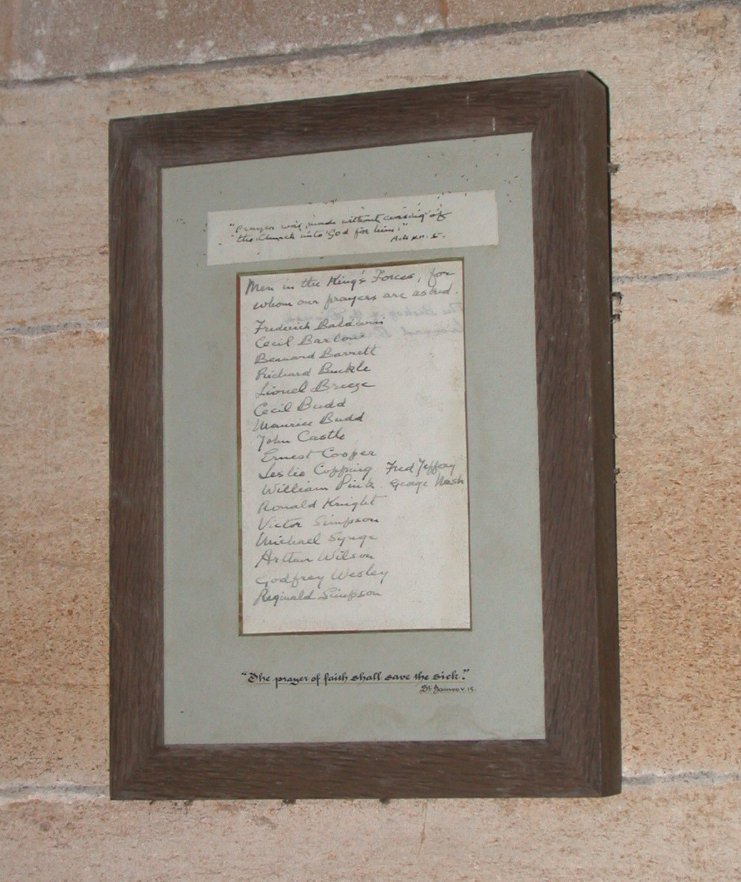 "Prayer was made without ceasing of
the Church unto God for him."
Acts XII. 5.
Men in the King's Forces, for
whom our prayers are asked.
Frederick Baldwin
Cecil Barlow
Bernard Barrett
Richard Buckle
Lionel Breeze
Cecil Budd
Maurice Budd
John Castle
Ernest Cooper
Leslie Copping Fred Jeffray
William Pink George Nash
Ronald Knight
Victor Simpson
Michael Synge
Arthur Wilson
Godfrey Wesley
Reginald Simpson
"The prayer of faith shall save the sick."
St. James v. 15.